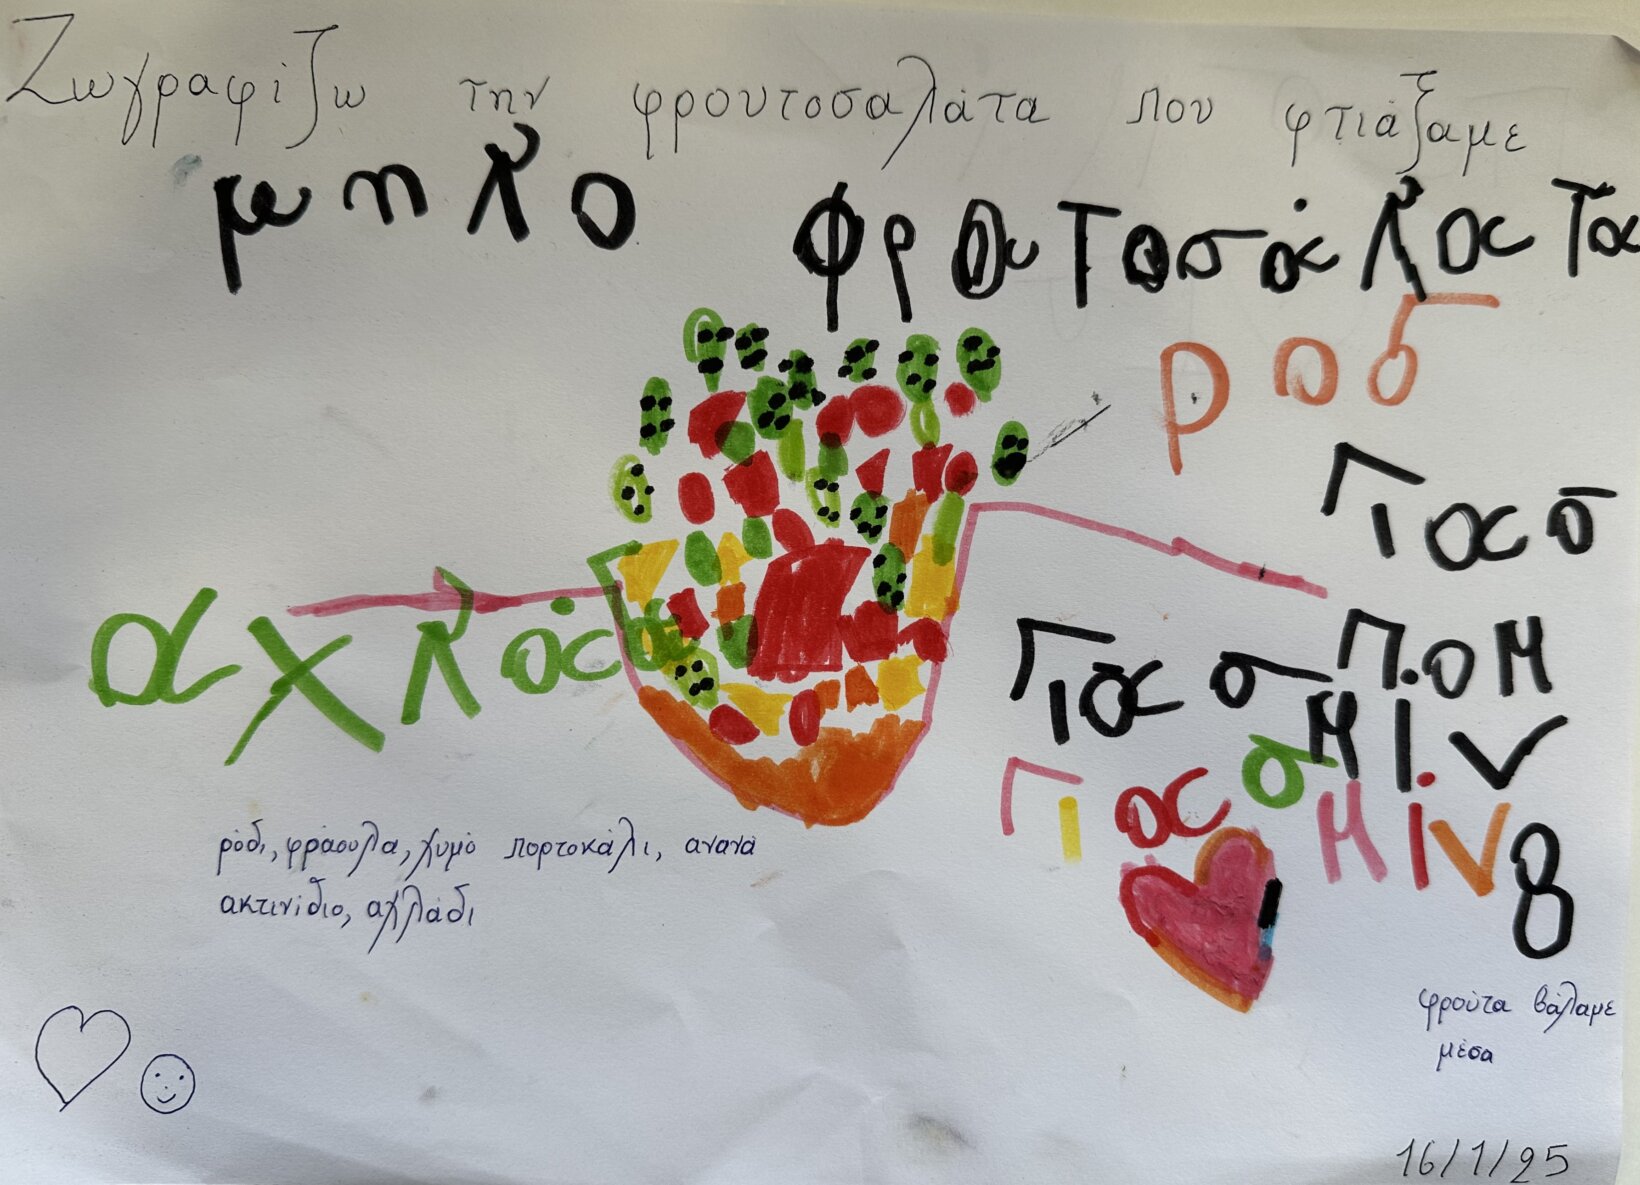 Ζωγραφίζω την φρουτοσαλάτα που φτιάξαμε
μηλο
φρουτοσάλατα
ροδ
Γιασ
αχλάα
Γιασ πομ
μίν
Γιασμίν
8
ρόδι, φράουλα, χυμό πορτοκάλι, ανανά
ακτινίδιο, αχλάδι
φρούτα βάλαμε
μέσα
16/1/25